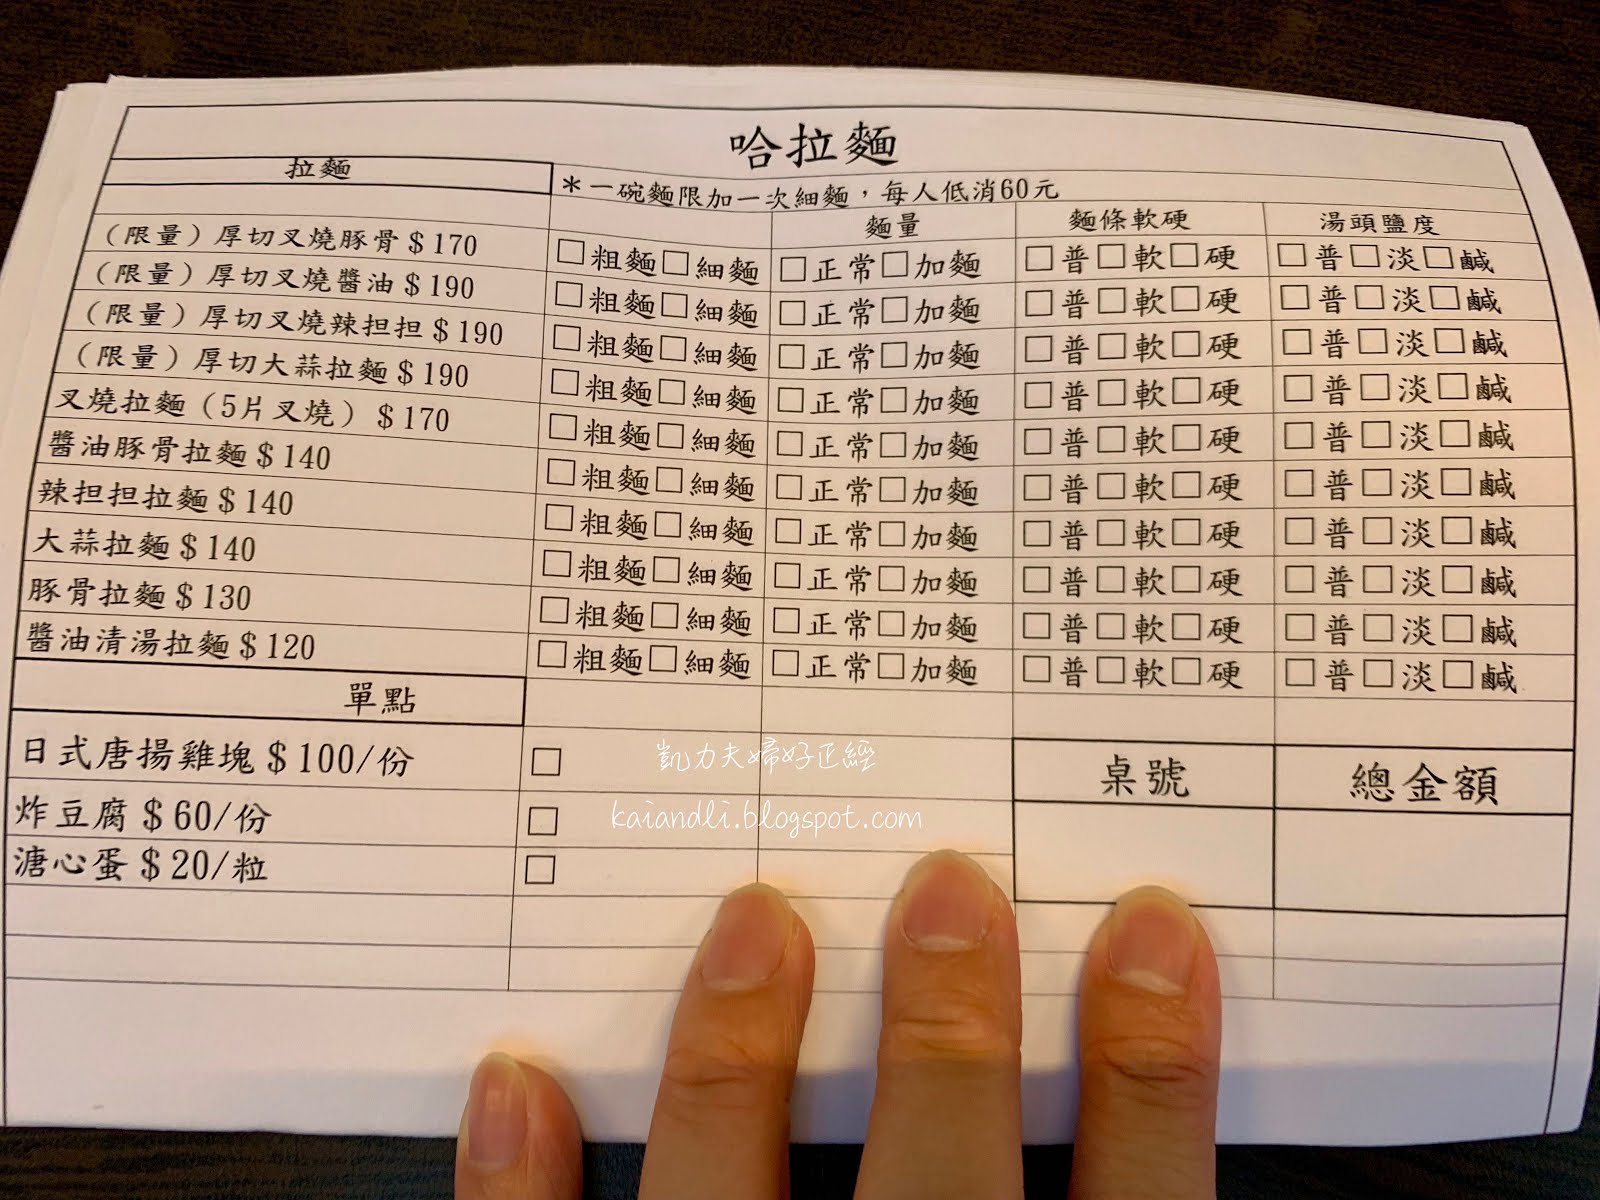 哈拉麵
拉麵
＊一碗麵限加一次細麵，每人低消60元
麵量 麵條軟硬 湯頭鹽度
（限量）厚切叉燒豚骨＄170 □粗麵□細麵 □正常□加麵 □普□軟□硬 □普□淡□鹹
（限量）厚切叉燒醬油＄190 □粗麵□細麵 □正常□加麵 □普□軟□硬 □普□淡□鹹
（限量）厚切叉燒辣担担＄190 □粗麵□細麵 □正常□加麵 □普□軟□硬 □普□淡□鹹
（限量）厚切大蒜拉麵＄190 □粗麵□細麵 □正常□加麵 □普□軟□硬 □普□淡□鹹
叉燒拉麵（5片叉燒）＄170 □粗麵□細麵 □正常□加麵 □普□軟□硬 □普□淡□鹹
醬油豚骨拉麵＄140 □粗麵□細麵 □正常□加麵 □普□軟□硬 □普□淡□鹹
辣担担拉麵＄140 □粗麵□細麵 □正常□加麵 □普□軟□硬 □普□淡□鹹
大蒜拉麵＄140 □粗麵□細麵 □正常□加麵 □普□軟□硬 □普□淡□鹹
豚骨拉麵＄130 □粗麵□細麵 □正常□加麵 □普□軟□硬 □普□淡□鹹
醬油清湯拉麵＄120 □粗麵□細麵 □正常□加麵 □普□軟□硬 □普□淡□鹹
單點
日式唐揚雞塊＄100/份 □
炸豆腐＄60/份 □
溏心蛋＄20/粒 □
桌號 總金額
凱力夫婦好正經
kaiandli.blogspot.com